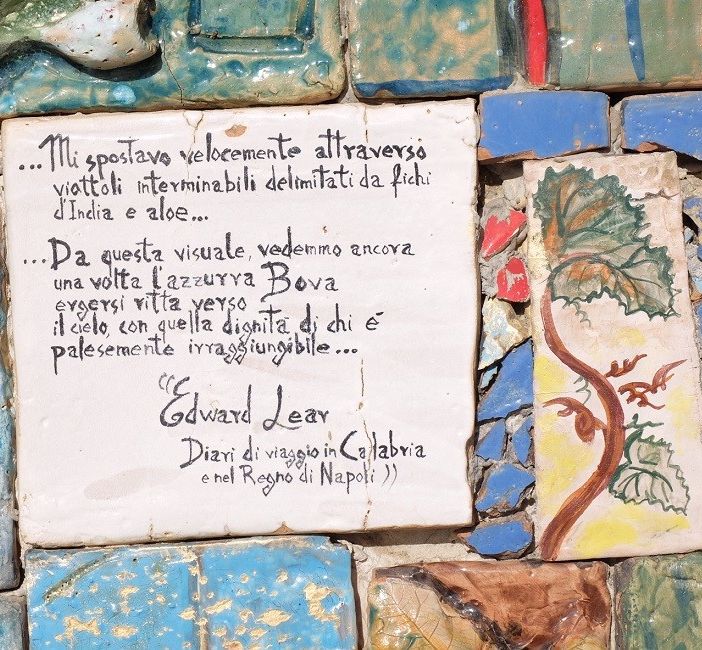 ...Mi spostavo velocemente attraverso
viottoli interminabili delimitati da fichi
d'India e aloe...
...Da questa visuale, vedemmo ancora
una volta l'azzurra Bova
ergersi ritta verso
il cielo, con quella dignità di chi é
palesemente irraggiungibile...
"Edward Lear
Diari di viaggio in Calabria
e nel Regno di Napoli ))